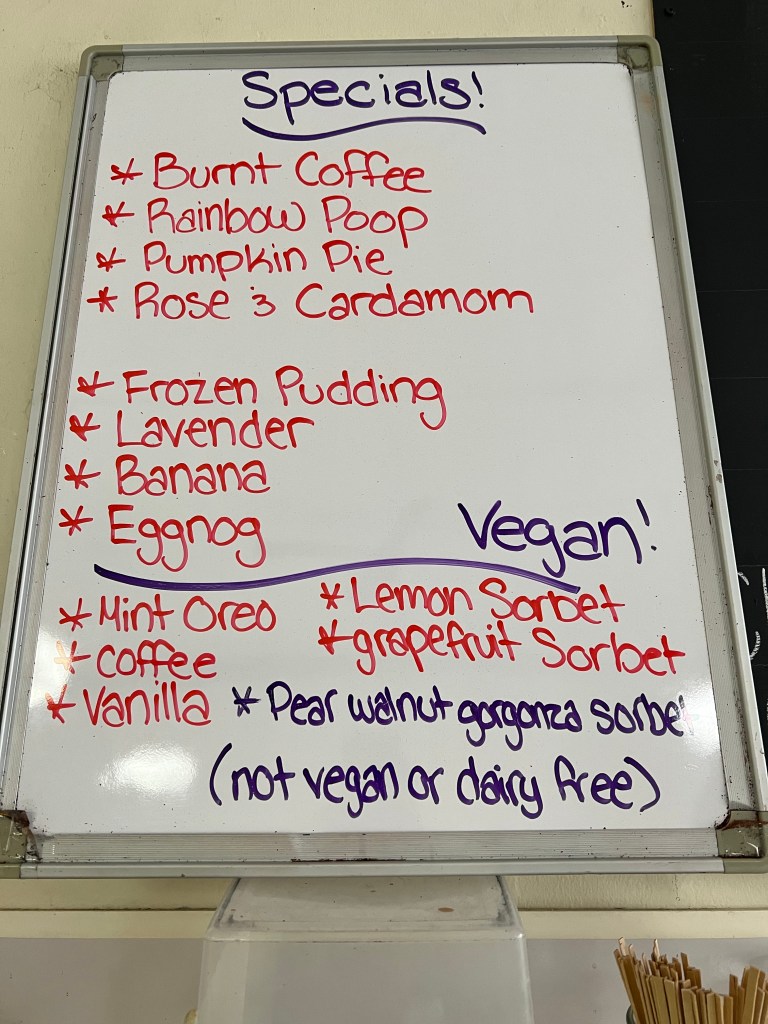 Specials!
* Burnt Coffee
* Rainbow Poop
* Pumpkin Pie
* Rose & Cardamom
* Frozen Pudding
* Lavender
* Banana
* Eggnog
Vegan!
* Mint Oreo
* coffee
* Vanilla
* Lemon Sorbet
* grapefruit Sorbet
* Pear walnut gorgonza sorbet
(not vegan or dairy free)